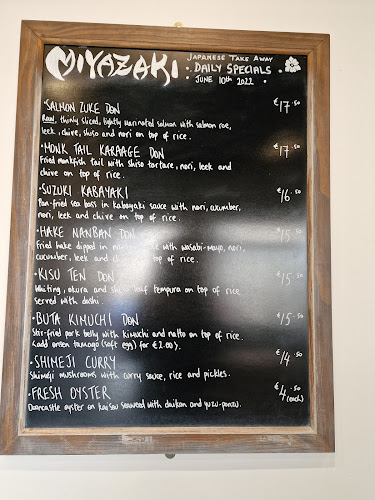 MIYAZAKI
JAPANESE TAKE AWAY
• DAILY SPECIALS •
JUNE 10th 2022
• SALMON ZUKE DON €17.50
Raw, thinly sliced, lightly marinated salmon with salmon roe,
leek, chive, shiso and nori on top of rice.
• MONK TAIL KARAAGE DON €17.50
Fried monkfish tail with shiso tartare, nori, leek and
chive on top of rice.
• SUZUKI KABAYAKI €16.50
Pan-fried sea bass in kabayaki sauce with nori, cucumber,
nori, leek and chive on top of rice.
• HAKE NANBAN DON €15.50
Fried hake dipped in with wasabi-mayo, nori,
cucumber, leek and top of rice.
• KISU TEN DON €15.50
Whiting, okura and shiso leaf tempura on top of rice.
Served with dashi.
• BUTA KIMUCHI DON €15.50
Stir-fried pork belly with kimuchi and natto on top of rice.
(add onsen tamago (soft egg) for €2.00).
• SHIMEJI CURRY €14.50
Shimeji mushrooms with curry sauce, rice and pickles.
• FRESH OYSTER €4.50
(each)
Dooncastle oyster on kaisou seaweed with daikon and yuzu-ponzu.